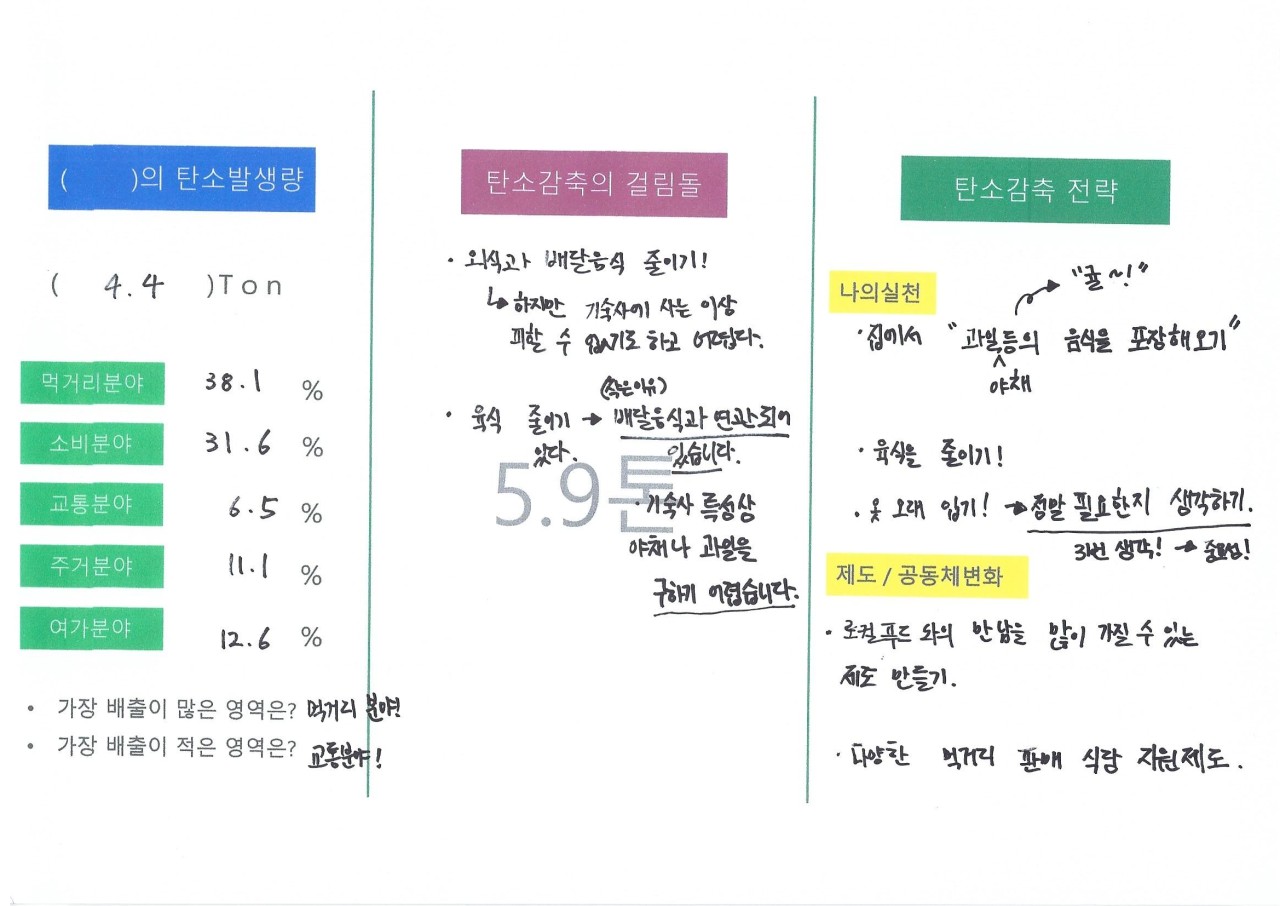 (      )의 탄소발생량
( 4.4 )Ton
먹거리분야 38.1 %
소비분야 31.6 %
교통분야 6.5 %
주거분야 11.1 %
여가분야 12.6 %
• 가장 배출이 많은 영역은? 먹거리 분야!
• 가장 배출이 적은 영역은? 교통분야!
탄소감축의 걸림돌
· 외식과 배달음식 줄이기!
↳ 하지만 기숙사에 사는 이상
피할 수 없기로 하고 어렵다.
· 육식 줄이기 → 배달음식과 연관되어
있다. 있습니다.
5.9톤
· 기숙사 특성상
야채나 과일을
구하기 어렵습니다.
탄소감축 전략
나의실천
"귤~!"
· 집에서 "과일등의 음식을 포장해오기"
야채
· 육식을 줄이기!
· 옷 오래 입기! → 정말 필요한지 생각하기.
3번 생각! → 중요성!
제도 / 공동체변화
· 로컬푸드 와의 만남을 많이 가질 수 있는
제도 만들기.
· 다양한 먹거리 판매 식당 지원제도.